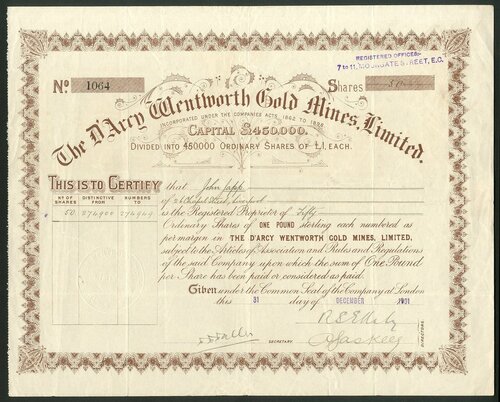 REGISTERED OFFICES:
7 to 11, MOORGATE STREET, E.C.
No 1064
Shares
The D'Arcy Wentworth Gold Mines, Limited.
INCORPORATED UNDER THE COMPANIES ACTS, 1862 TO 1898.
CAPITAL £450,000.
DIVIDED INTO 450000 ORDINARY SHARES OF £1 EACH.
THIS IS TO CERTIFY that John
of Liverpool
is the Registered Proprietor of Fifty
Ordinary Shares of ONE POUND sterling each numbered as
per margin in THE D'ARCY WENTWORTH GOLD MINES, LIMITED,
subject to the Articles of Association and Rules and Regulations
of the said Company upon which the sum of One Pound
per Share has been paid or considered as paid.
Given under the Common Seal of the Company at London
this 31 day of DECEMBER 1901
No OF SHARES
DISTINCTIVE FROM
NUMBERS TO
50 274900 274949
SECRETARY
DIRECTORS.